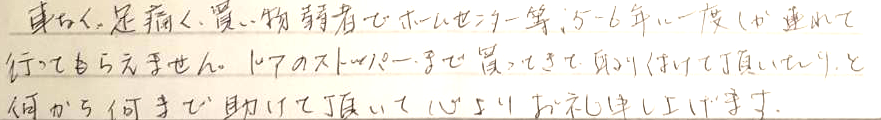 車なく、足痛く、買い物弱者でホームセンター等、5-6年に一度しか連れて
行ってもらえません。ドアのストッパーまで買ってきて取り付けて頂いたり、と
何から何まで助けて頂いて心よりお礼申し上げます。